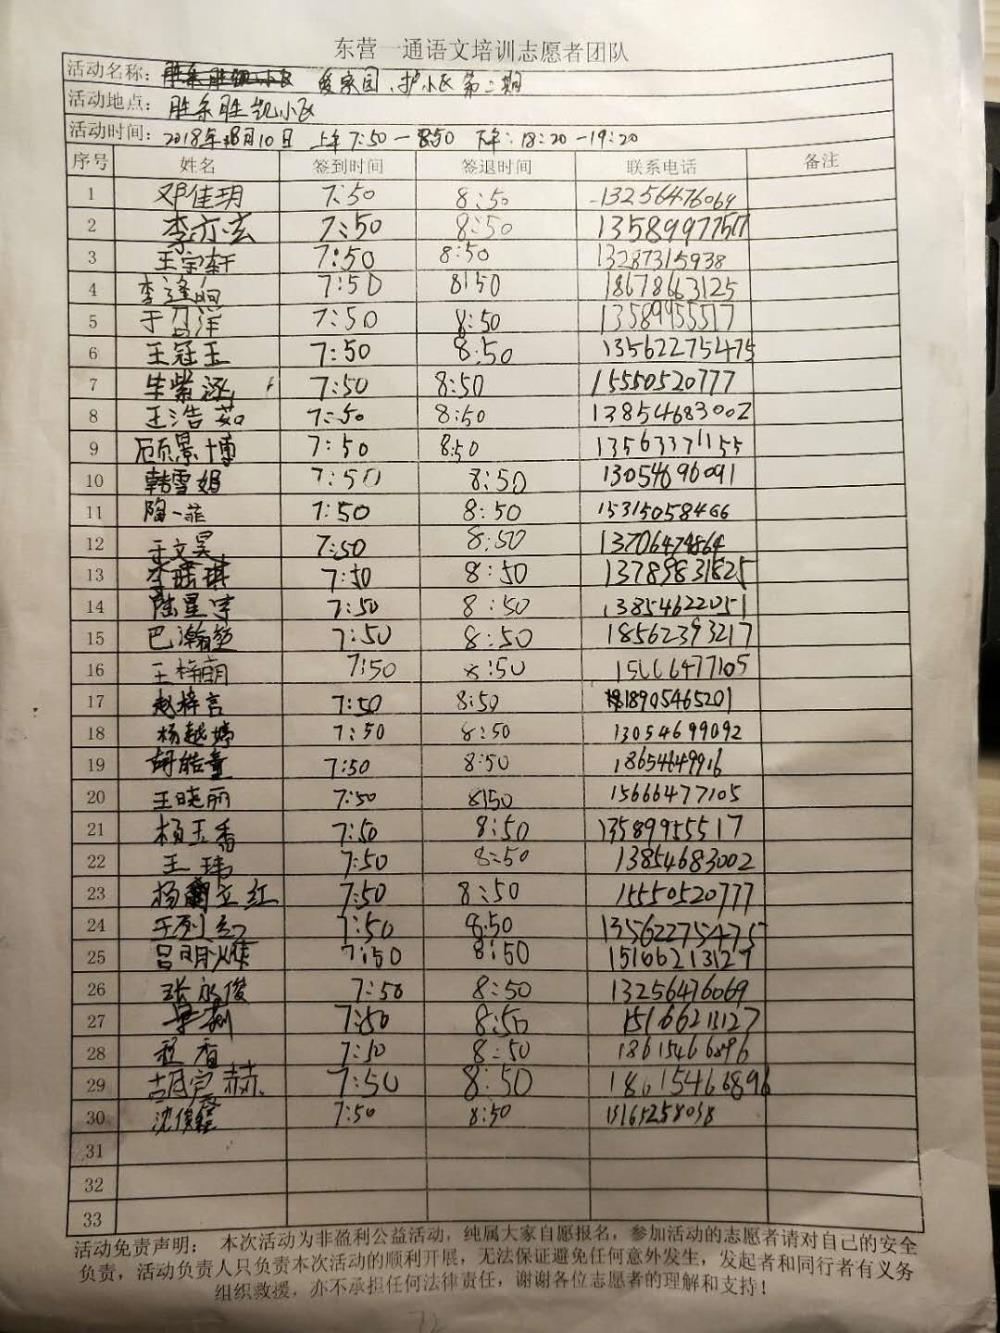 东营一通语文培训志愿者团队
活动名称: 爱家园、护小区 第二期
活动地点: 胜东胜凯小区
活动时间: 2018年08月10日 上午7:50-8:50 下午:18:20-19:20
序号 姓名 签到时间 签退时间 联系电话 备注
1 邓佳玥 7:50 8:50 13256476069
2 李亦宏 7:50 8:50 13589977517
3 王宇轩 7:50 8:50 13287315938
4 李逢煦 7:50 8:50 18678663125
5 于召洋 7:50 8:50 13589955517
6 王冠玉 7:50 8:50 13562275475
7 牟紫涵 7:50 8:50 15550520777
8 王浩茹 7:50 8:50 13854683002
9 顾景博 7:50 8:50 13563371155
10 韩雪娟 7:50 8:50 13054696091
11 陶一菲 7:50 8:50 15315058466
12 王文昊 7:50 8:50 13706474864
13 李瑞琪 7:50 8:50 13789831825
14 陆星宇 7:50 8:50 13854622051
15 巴瀚 7:50 8:50 18562393217
16 王梓萌 7:50 8:50 15666477105
17 赵梓言 7:50 8:50 18905465201
18 杨越婷 7:50 8:50 13054699092
19 胡皓童 7:50 8:50 18654649916
20 王晓丽 7:50 8:50 15666477105
21 杨玉香 7:50 8:50 13589955517
22 王玮 7:50 8:50 13854683002
23 杨立红 7:50 8:50 15550520777
24 王列红 7:50 8:50 13562275475
25 吕明 7:50 8:50 15166213127
26 张永俊 7:50 8:50 13256476069
27 7:50 8:50 15166213127
28 程香 7:50 8:50 18615466896
29 胡宸赫 7:50 8:50 18615466896
30 沈俊 7:50 8:50
31
32
33
活动免责声明: 本次活动为非盈利公益活动,纯属大家自愿报名,参加活动的志愿者请对自己的安全
负责,活动负责人只负责本次活动的顺利开展,无法保证避免任何意外发生,发起者和同行者有义务
组织救援,亦不承担任何法律责任,谢谢各位志愿者的理解和支持!